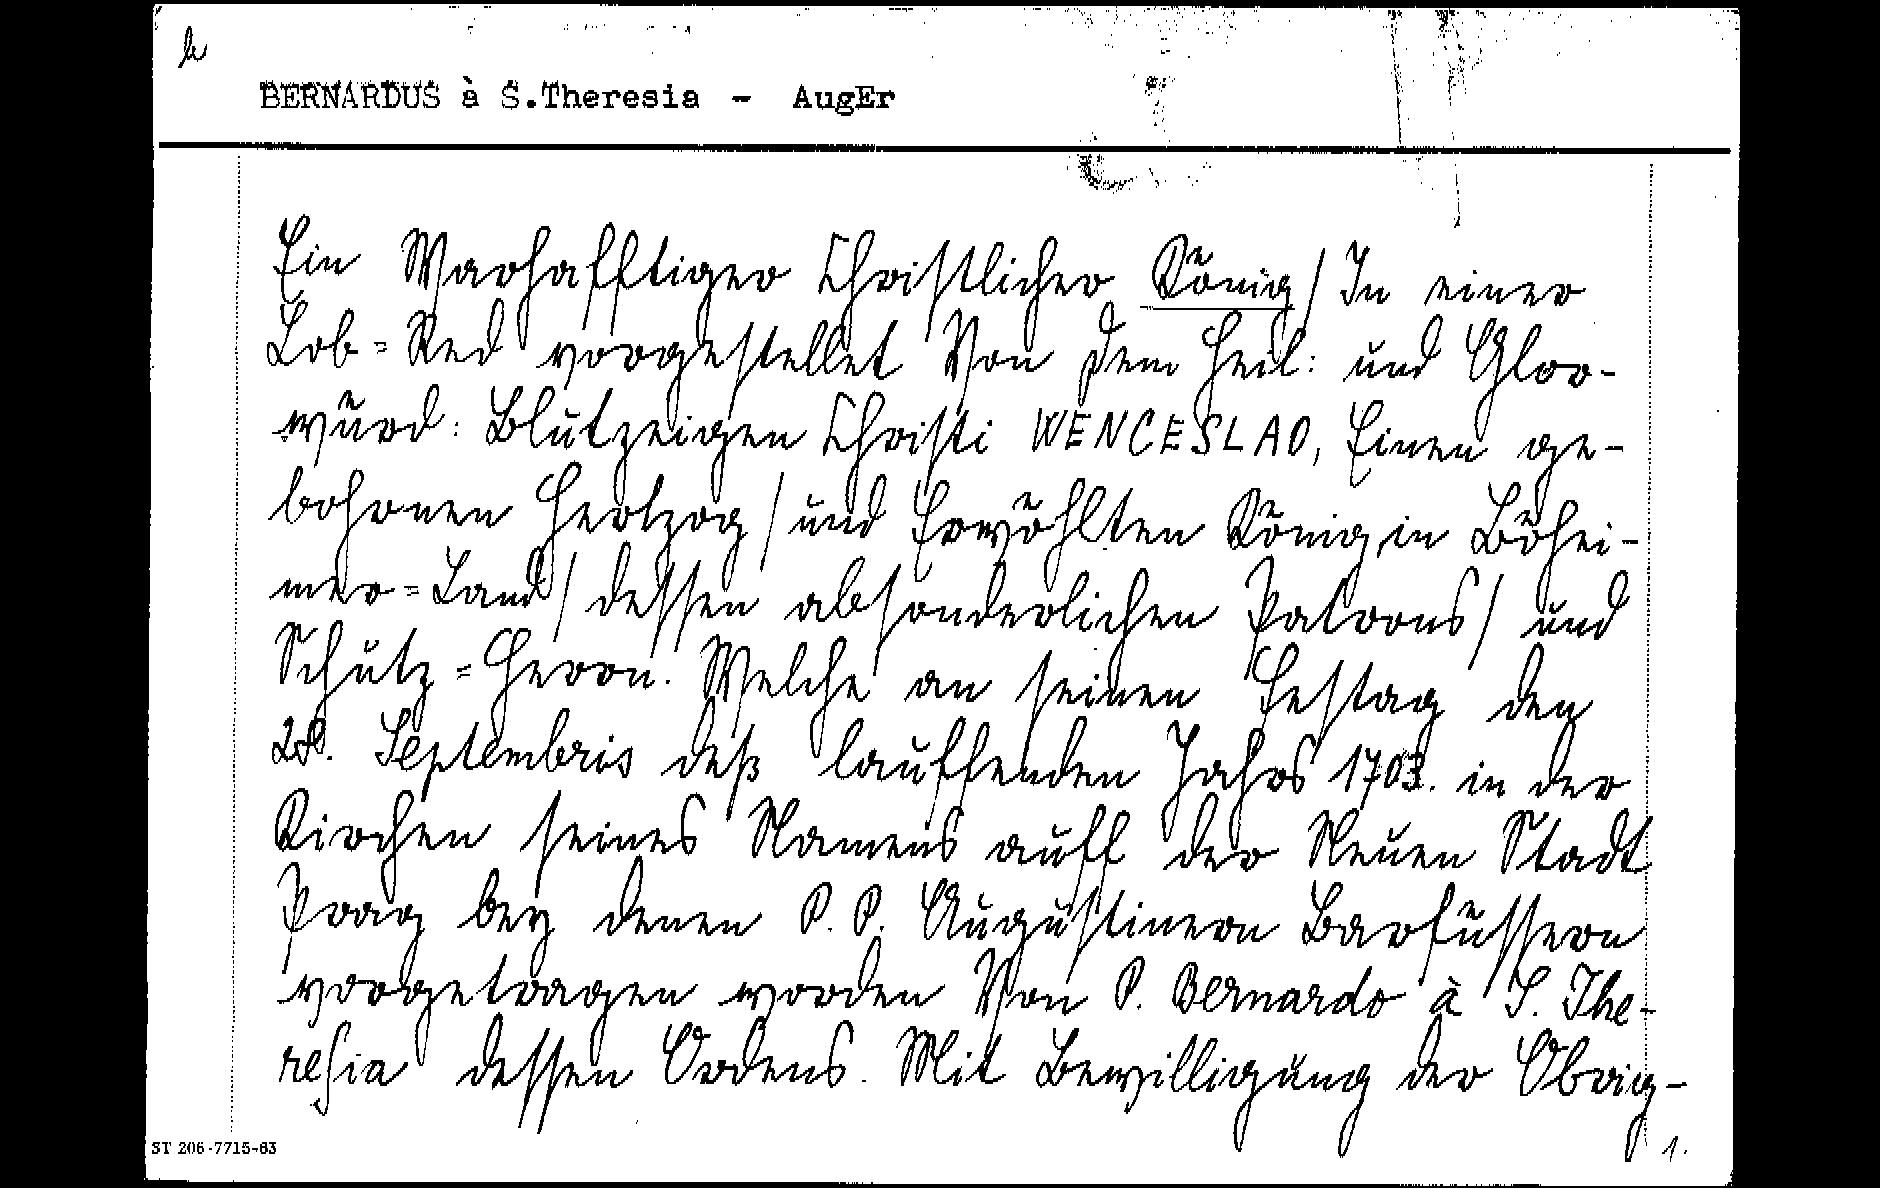 b
BERNARDUS à S.Theresia - AugEr
Ein Warhafftiger Christlicher König / In einer
Lob=Red vorgestellet Von dem Heil: und Glor-
würd: Blutzeigen Christi WENCESLAO, Einen ge-
bohrnen Hertzog / und Erwöhlten König in Böhei-
mer=Land / dessen absonderlichen Patrons / und
Schutz=Herrn. Welche an seinen Festag den
28. Septembris deß lauffenden Jahrs 1703. in der
Kirchen seines Namens auff der Neuen Stadt
Prag bey denen P. P. Augustinern Barfüssern
vorgetragen worden Von P. Bernardo à S. The-
resia dessen Ordens. Mit Bewilligung der Obrig-
1.
ST 206-7715-63